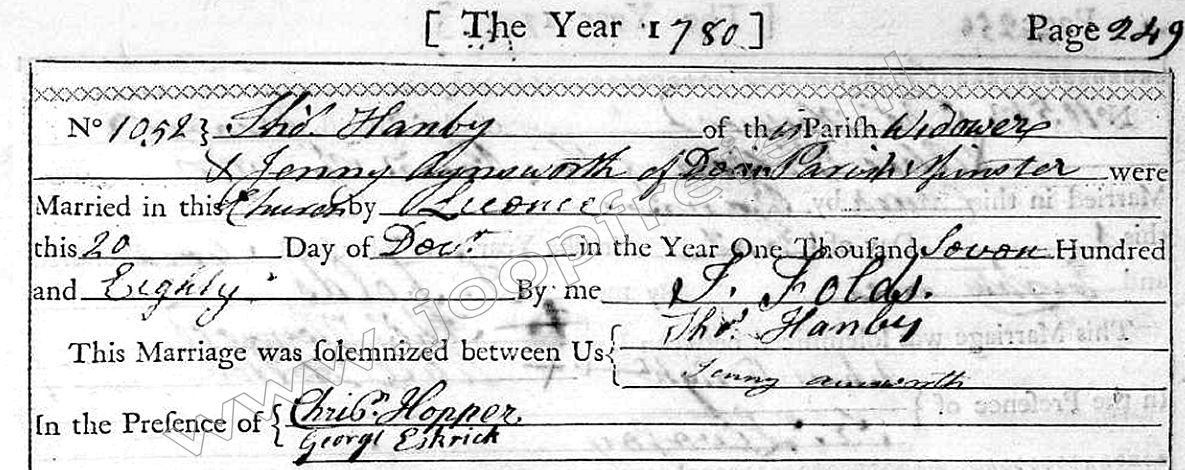 [ The Year 1780 ] Page 249
No 1052 } Thos. Hanby of this Parish Widower
& Jenny Aynsworth of Dean Parish Spinster were
Married in this Church by Licence
this 20 Day of Decr. in the Year One Thousand Seven Hundred
and Eighty By me J. Folds.
This Marriage was solemnized between Us { Thos. Hanby
Jenny ainsworth
In the Presence of { Chrisr. Hopper.
George Eskrick